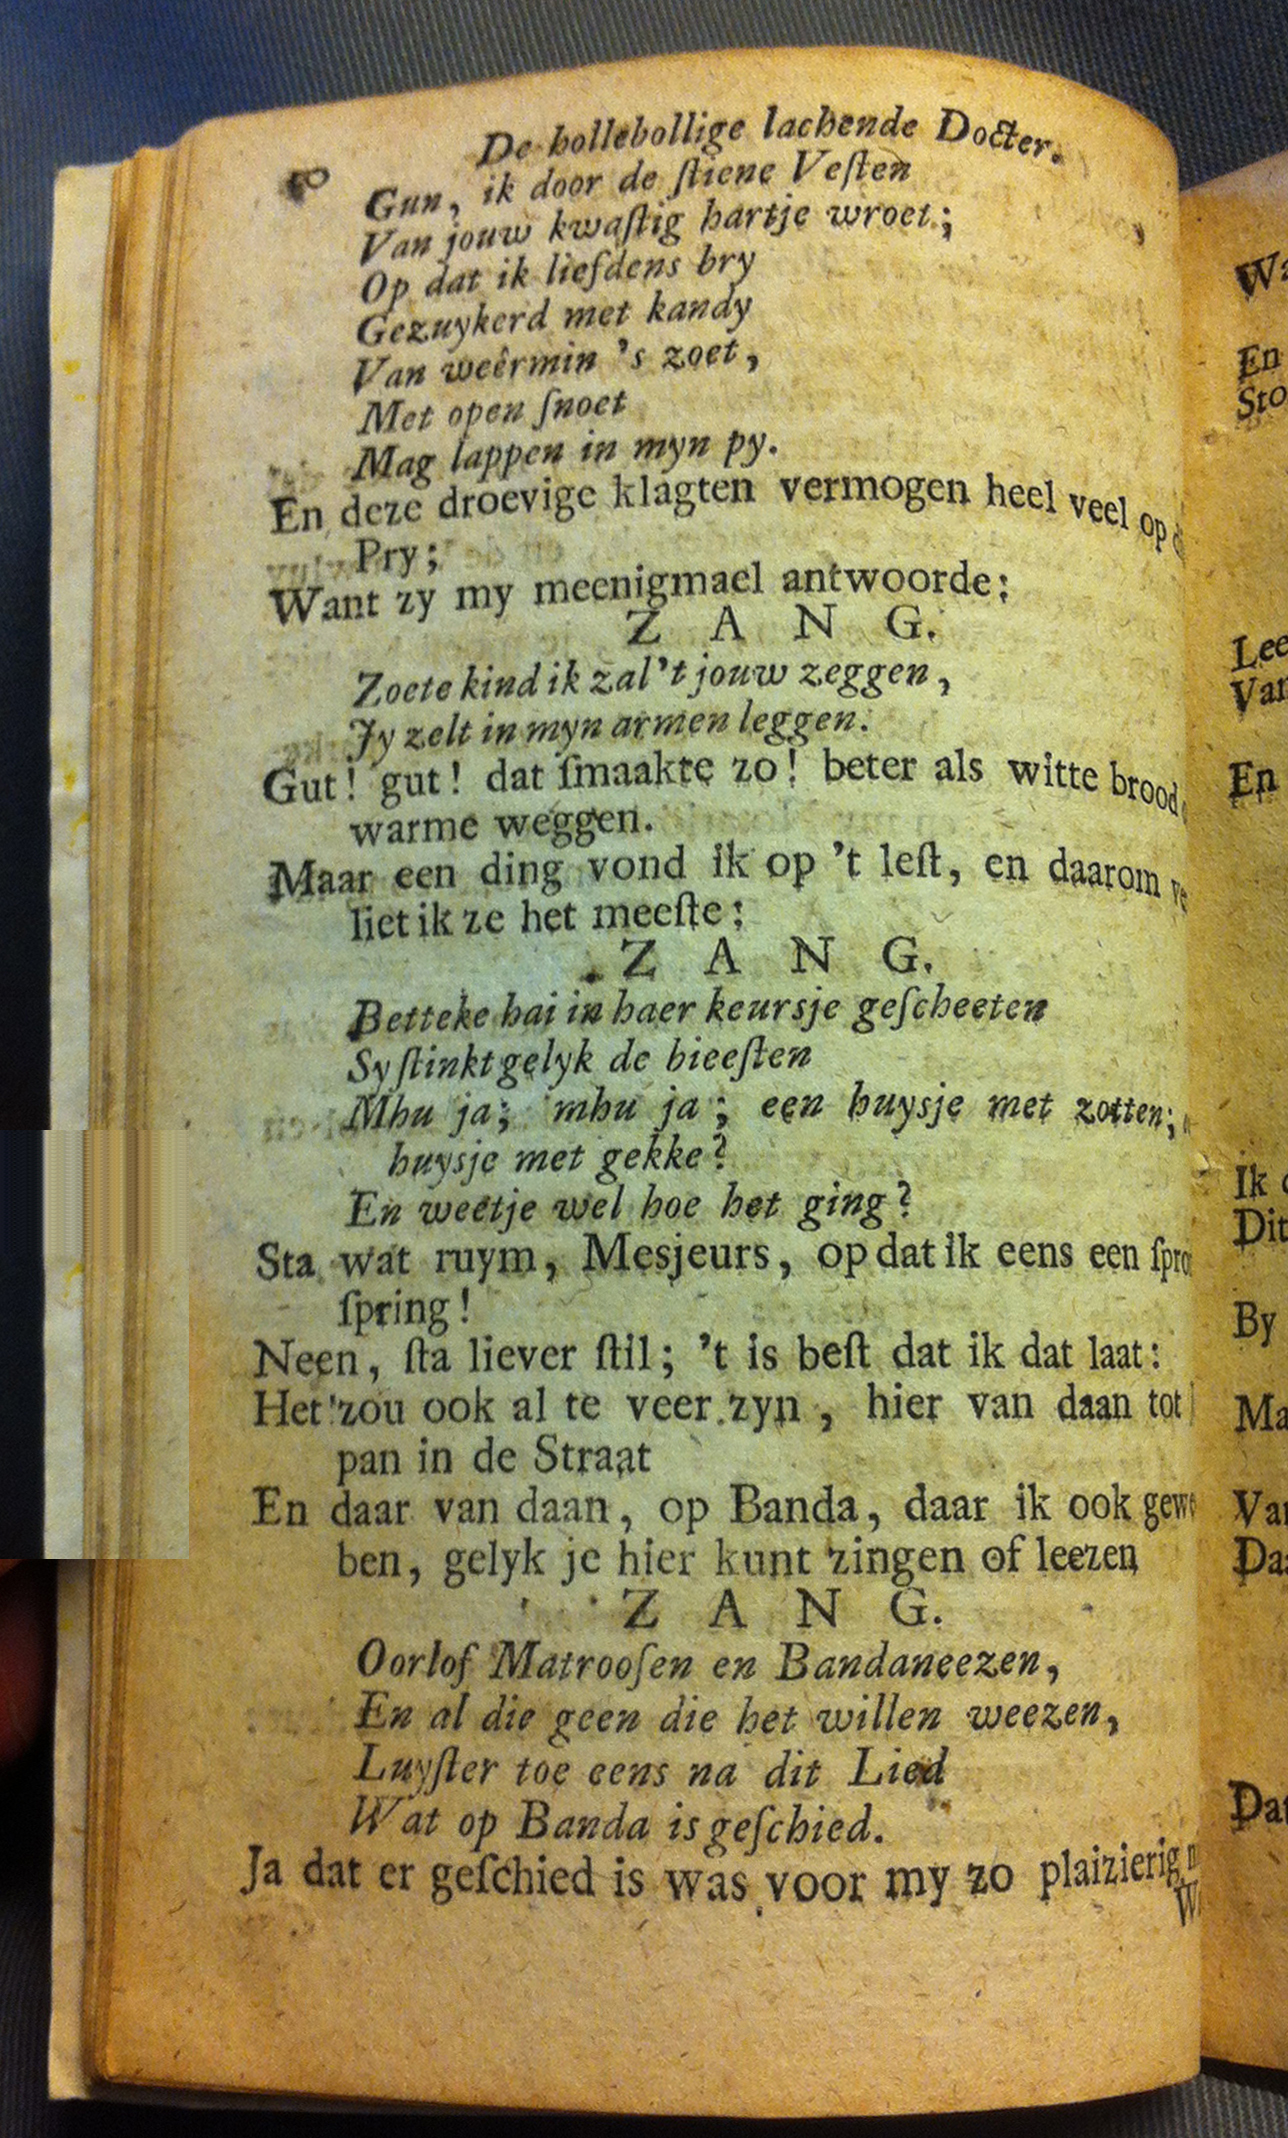 De hollebollige lachende Docter.
Gun, ik door de ſtiene Veſten
Van jouw kwaſtig hartje wroet;
Op dat ik liefdens bry
Gezuykerd met kandy
Van weêrmin 's zoet,
Met open ſnoet
Mag lappen in myn py.
En deze droevige klagten vermogen heel veel op
Pry;
Want zy my meenigmael antwoorde:
Z A N G.
Zoete kind ik zal 't jouw zeggen,
Jy zelt in myn armen leggen.
Gut! gut! dat ſmaakte zo! beter als witte brood
warme weggen.
Maar een ding vond ik op 't leſt, en daarom
liet ik ze het meeſte:
Z A N G.
Betteke hai in haer keursje geſcheeten
Sy ſtinkt gelyk de bieeſten
Mhu ja; mhu ja; een huysje met zotten;
huysje met gekke?
En weetje wel hoe het ging?
Sta wat ruym, Mesjeurs, op dat ik eens een
ſpring!
Neen, ſta liever ſtil; 't is beſt dat ik dat laat:
Het zou ook al te veer zyn, hier van daan tot
pan in de Straat
En daar van daan, op Banda, daar ik ook
ben, gelyk je hier kunt zingen of leezen
Z A N G.
Oorlof Matrooſen en Bandaneezen,
En al die geen die het willen weezen,
Luyſter toe eens na dit Lied
Wat op Banda is geſchied.
Ja dat er geſchied is was voor my zo plaizierig
En
En
Ik
By